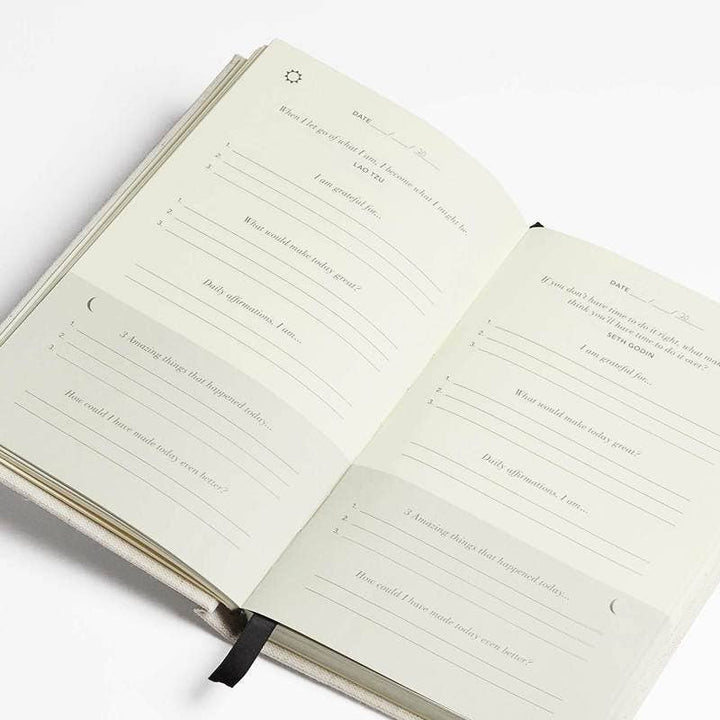 DATE ___/___/ 20___
When I let go of what I am, I become what I might be.
LAO TZU
I am grateful for...
1.
2.
3.
What would make today great?
1.
2.
3.
Daily affirmations. I am...
3 Amazing things that happened today...
1.
2.
3.
How could I have made today even better?
DATE ___/___/ 20___
If you don't have time to do it right, what mak
think you'll have time to do it over?
SETH GODIN
I am grateful for...
1.
2.
3.
What would make today great?
1.
2.
3.
Daily affirmations. I am...
3 Amazing things that happened today...
1.
2.
3.
How could I have made today even better?